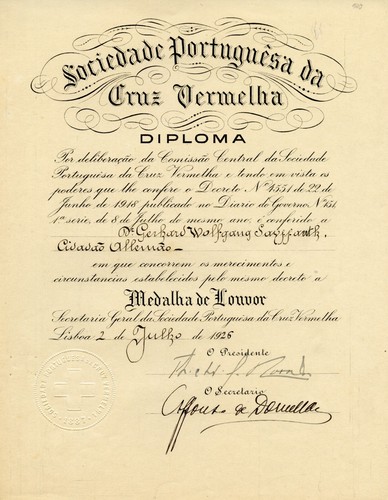 Sociedade Portuguêsa da
Cruz Vermelha
DIPLOMA
Por deliberação da Comissão Central da Sociedade
Portuguêsa da Cruz Vermelha e tendo em vista os
poderes que lhe confere o Decreto Nº 4551 de 22 de
Junho de 1918 publicado no Diario do Governo Nº 151
1ª serie, de 8 de Julho do mesmo ano, é conferido a
Dr Gerhard Wolfgang
Cidadão Allemão
em que concorrem os merecimentos e
circunstancias estabelecidos pelo mesmo decreto a
Medalha de Louvor
Secretaria Geral da Sociedade Portuguêsa da Cruz Vermelha
Lisboa 2 de Julho de 1926
O Presidente
O Secretario
Affonso de Dornellas